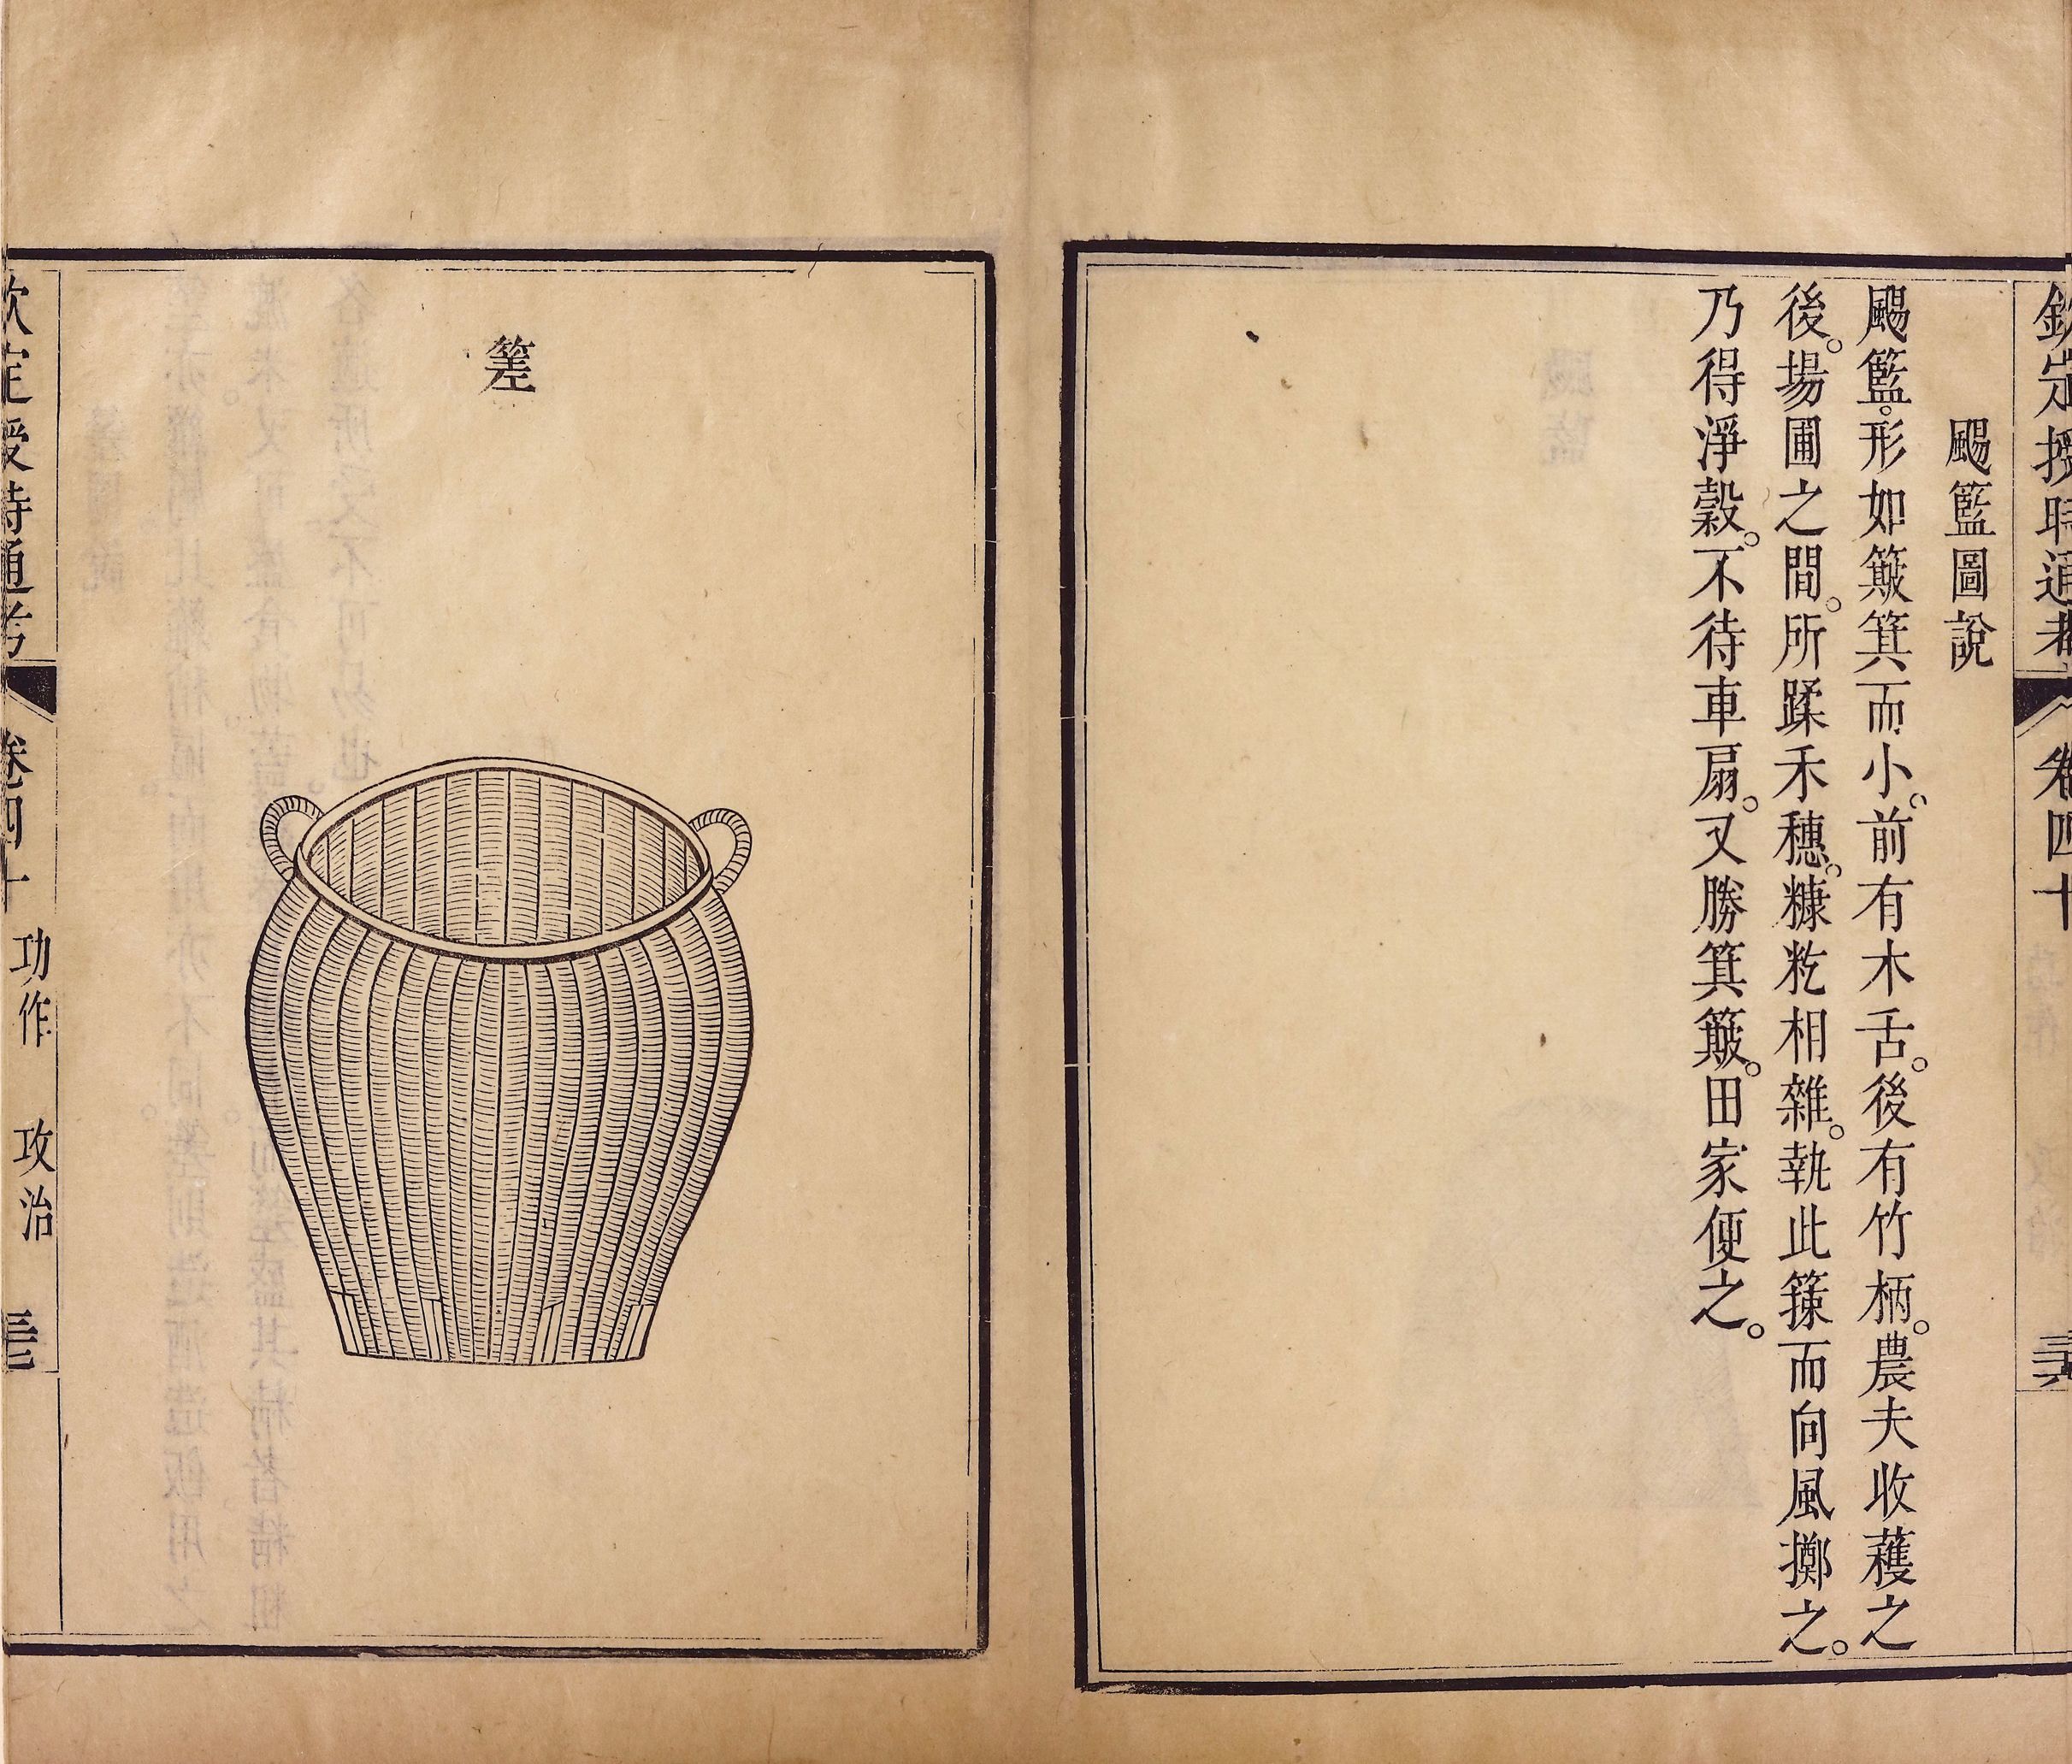 欽定授時通考
卷四十
颺籃圖說
颺籃。形如簸箕而小。前有木舌。後有竹柄。農夫收穫之
後。場圃之間。所蹂禾穗。糠籺相雜。執此而向風擲之。
乃得淨穀。不待車扇。又勝箕簸。田家便之。
䇪
欽定授時通考
卷四十
功作
攻治